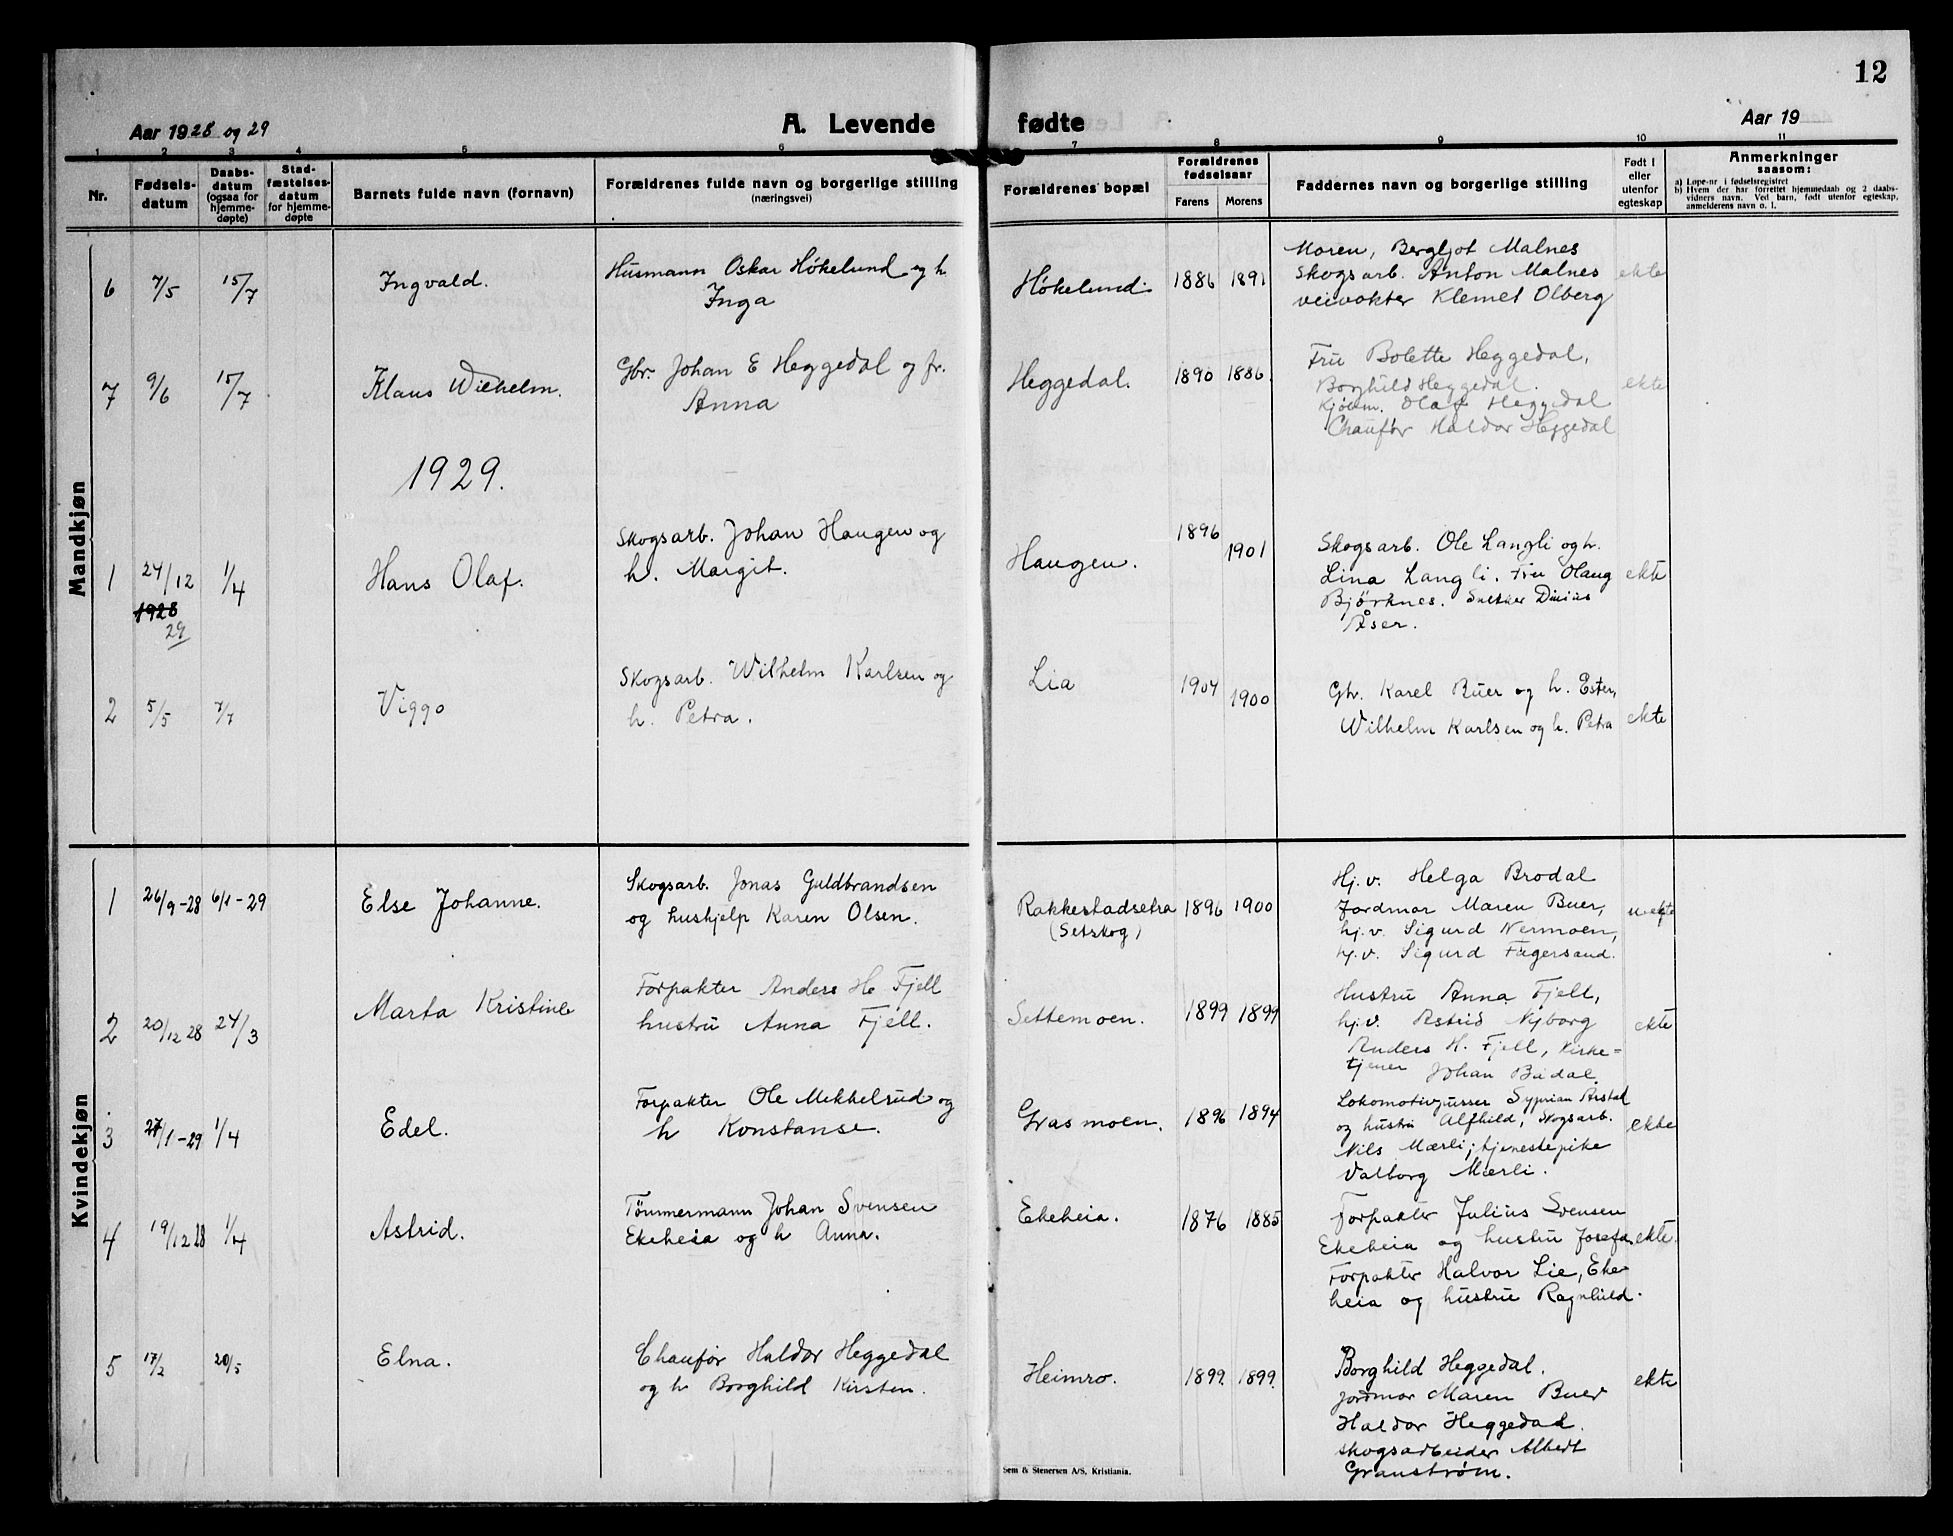 12
Aar 1928 og 29
A. Levende fødte
Aar 19
1 2 3 4 5 6 7 8 9 10 11
Nr.
Fødsels-
datum
Daabs-
datum
(ogsaa for
hjemme-
døpte)
Stad-
fæstelses-
datum
for hjemme-
døpte
Barnets fulde navn (fornavn)
Forældrenes fulde navn og borgerlige stilling
(næringsvei)
Forældrenes bopæl
Forældrenes
fødselsaar
Farens Morens
Faddernes navn og borgerlige stilling
Født i
eller
utenfor
egteskap
Anmerkninger
saasom:
a) Løpe-nr i fødselsregistret
b) Hvem der har forrettet hjemmedaab og 2 daabs-
vidners navn. Ved barn, født utenfor egteskap,
anmelderens navn o. l.
Mandkjøn
6 7/5 15/7 Ingvald.
Husmann Oskar Høkelund og h.
Inga
Høkelund. 1886 1891
Moren, Bergljot Malnes
Skogsarb. Anton Malnes
veivokter Klemet Olberg
ekte
7 9/6 15/7 Klaus Wilhelm.
Gbr. Johan E Heggedal og fr.
Anna
Heggedal. 1890 1886.
Fru Bolette Heggedal,
Borghild Heggedal.
Kjøbm. Olaf Heggedal
Chaufør Haldor Heggedal
ekte
1929.
1 24/12 1/4 Hans Olaf.
1928
29
Skogsarb. Johan Haugen og
h. Margit.
Haugen. 1896 1901
Skogsarb. Ole Langli og h.
Lina Langli. Fru Olaug
Bjørknes. Snekker
Åser.
ekte
2 5/5 7/7 Viggo
Skogsarb. Wilhelm Karlsen og
h. Petra.
Lia 1904 1900
Gbr. Karel Buer og h. Ester,
Wilhelm Karlsen og h. Petra
ekte
Kvindekjøn
1 26/9-28 6/1-29 Else Johanne.
Skogsarb. Jonas Guldbrandsen
og hushjelp Karen Olsen.
Rakkestadsetra 1896 1900
(Setskog)
Hj. v. Helga Brodal
Jordmor Maren Buer,
hj. v. Sigurd Nermoen,
hj. v. Sigurd Fagersand.
uekte
2 20/12 28 24/3 Marta Kristine
Forpakter Anders H Fjell
hustru Anna Fjell.
Settemoen. 1899 1899
Hustru Anna Fjell,
hj. v. Astrid Nyborg
Anders H. Fjell, Kirke-
tjener Johan Bødal.
ekte
3 27/1-29 1/4 Edel.
Forpakter Ole Mekkelsrud og
h Konstanse.
Grasmoen. 1896 1894
Lokomotivpusser Syprian Årstad
og hustru Alfhild, Skogsarb.
Nils Mærli; tjenestepike
Valborg Mærli.
ekte
4 19/12 28 1/4 Astrid.
Tömmermann Johan Svensen
Ekeheia og h Anna.
Ekeheia. 1876 1885
Forpakter Julius Svensen
Ekeheia og hustru Josefa.
Forpakter Halvor Lie, Eke-
heia og hustru Ragnhild.
ekte.
5 17/2 20/5 Elna.
Chaufør Haldor Heggedal
og h Borghild Kirsten.
Heimro. 1899. 1899.
Borghild Heggedal.
Jordmor Maren Buer
Haldor Heggedal
skogsarbeider Albert
Granstrøm.
ekte
Sem & Stenersen A/S, Kristiania.